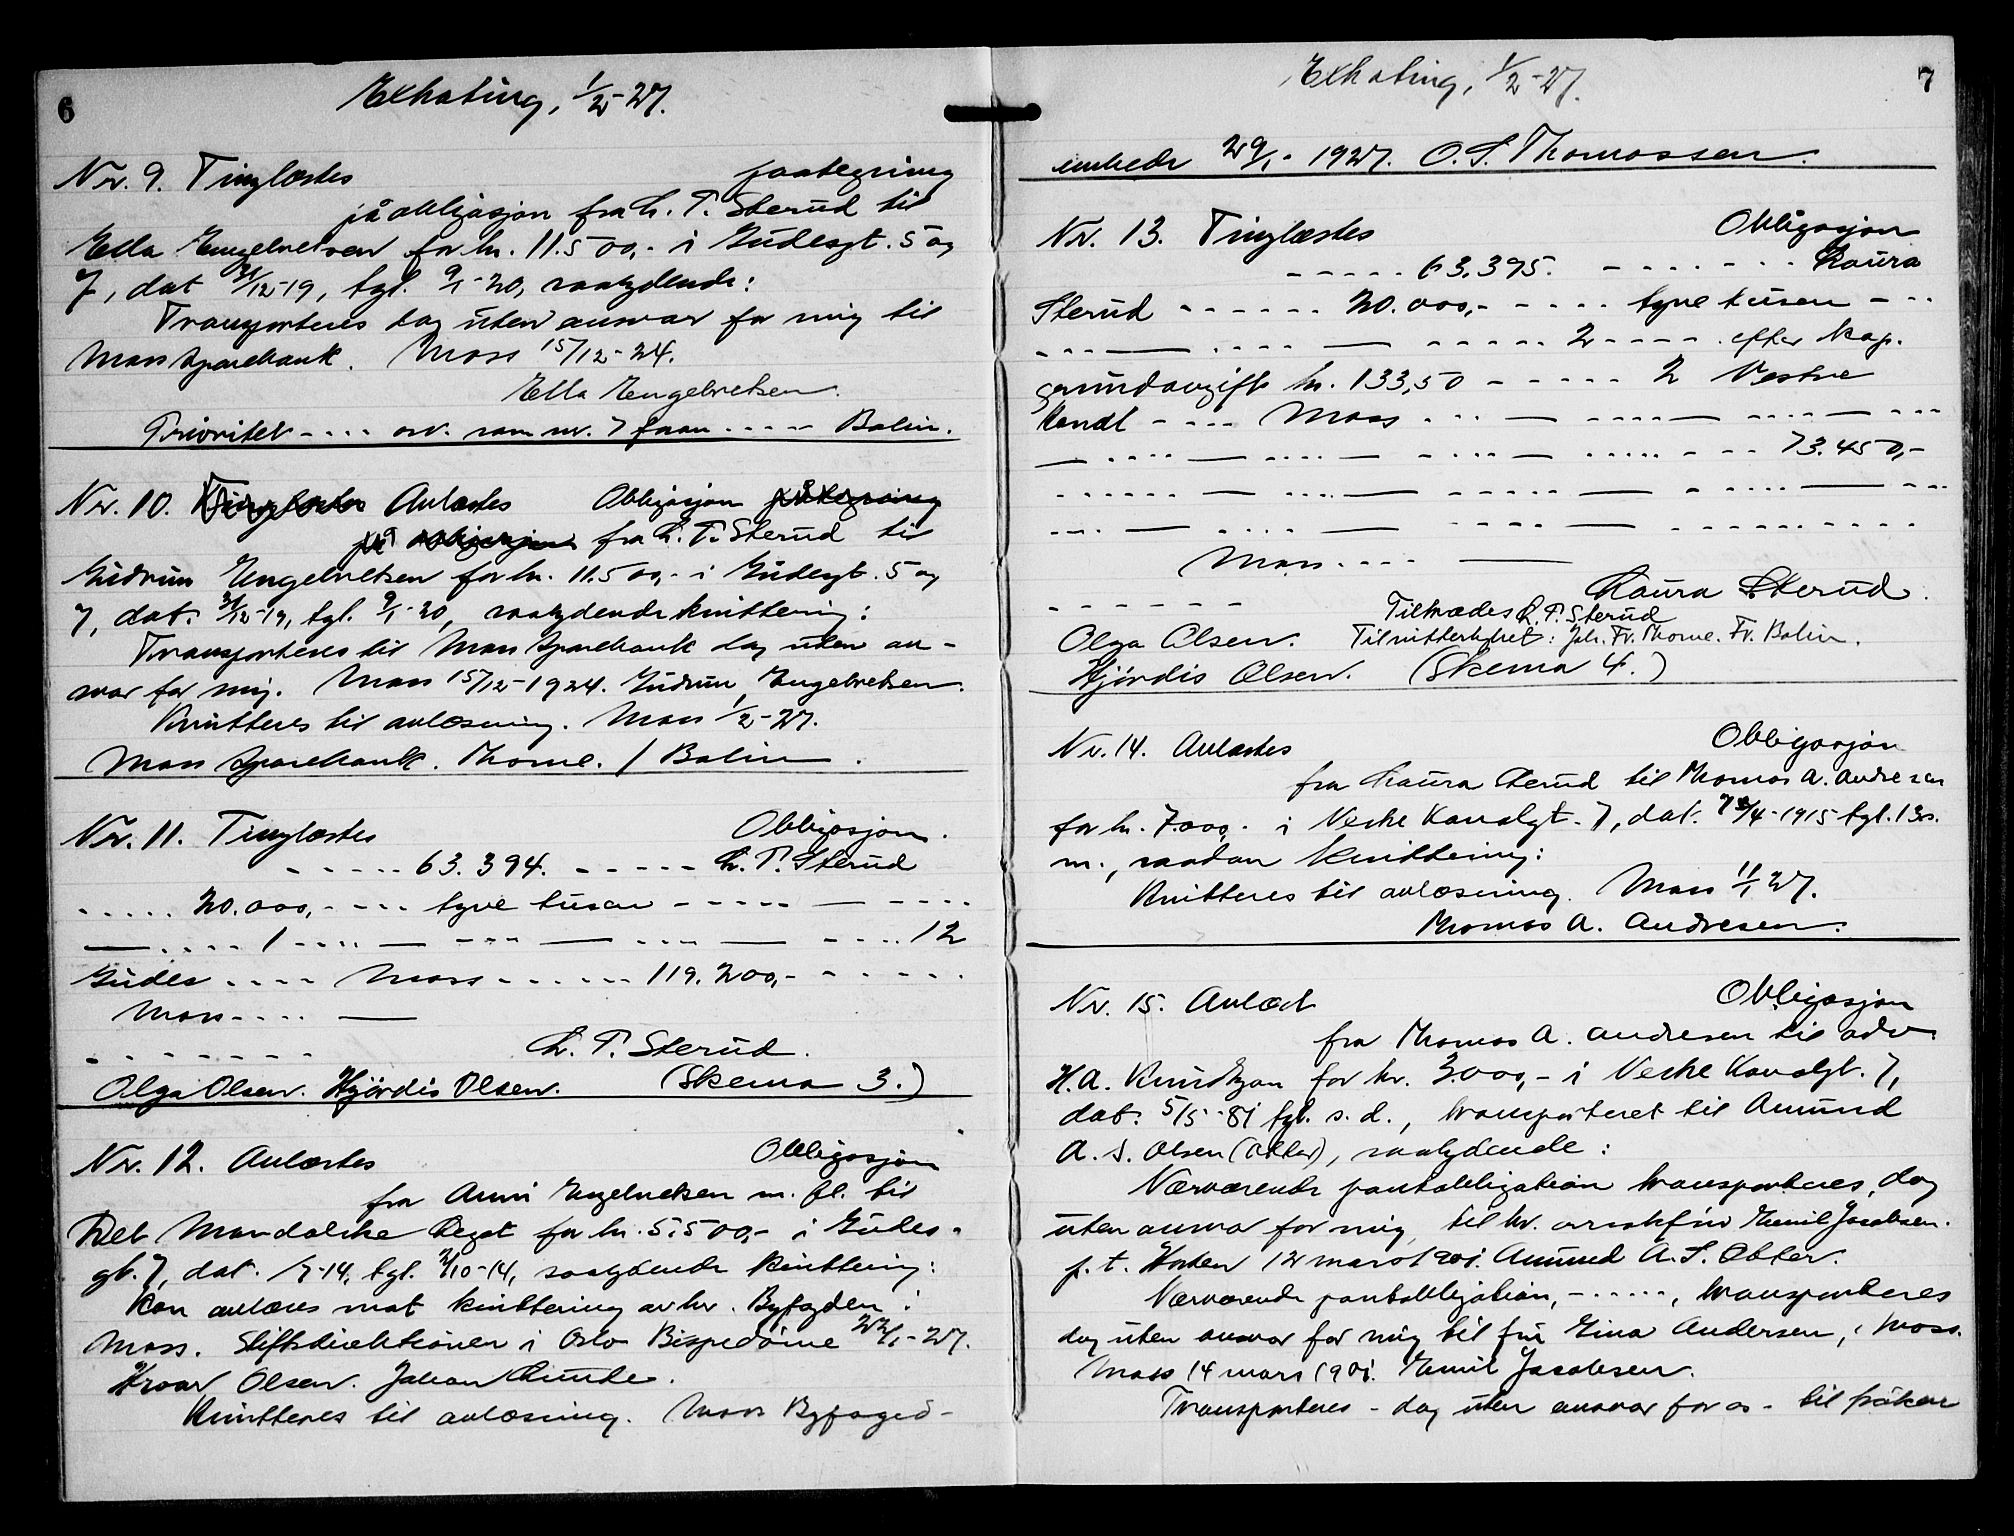 6
Ekstrating, 1/2-27.
Nr. 9. Tinglæstes paategning
på obligasjon fra L. T. Sterud til
Ella Engebretsen for kr. 11.500,- i Gudesgt. 5 og
7, dat 31/12-19, tgl. 9/1-20, saalydende:
Transporteres dog uten ansvar for mig til
Moss Sparebank. Moss 15/12-24.
Ella Engebretsen.
Prioritet - - - - osv. som nr. 7 foran - - - - - Bolin.
Nr. 10. Tinglæstes Avlæstes Obligasjon påtegning
på obligasjon fra L. T. Sterud til
Gudrun Engebretsen for kr. 11.500,- i Gudesgt. 5 og
7, dat. 31/12-19, tgl. 9/1-20, saalydende kvittering:
Transporteres til Moss Sparebank dog uten an-
svar for mig. Moss 15/12-1924. Gudrun Engebretsen.
Kvitteres til avlæsning. Moss 1/2-27.
Moss Sparebank. Thorne. / Bolin.
Nr. 11. Tinglæstes Obligasjon.
- - - - - 63.394. - - - - - L. T. Sterud
- - - - - 20.000,- - - - - tyve tusen - - - - - — - - - -
— - - - - 1 - - - - — - - - — - - - — - - - - 12
Gudes - - - - Moss - - - - - - 119.200,- - - - - -
Moss - - - - —
- - - - - - - L. T. Sterud.
Olga Olsen. Hjördis Olsen. (Skema 3.)
Nr. 12. Avlæstes Obligasjon
fra Anni Engebretsen m. fl. til
Det Mandalske Legat for kr. 5.500,- i Gudes-
gt. 7, dat. /7-14, tgl. 2/10-14, saalydende kvittering:
Kan avlæses mot kvittering av hr. Byfogden i
Moss. Stiftsdirektionen i Oslo Bispedöme 22/1-27.
Hroar Olsen. Johan Lunde.
Kvitteres til avlæsning. Moss Byfoged-
7
Ekstrating, 1/2-27.
embede 29/1-1927. O. S. Thomassen.
Nr. 13. Tinglæstes Obligasjon
- - - - - 63.395. - - - - - - - Laura
Sterud - - - - - - 20.000,- - - - - tyve tusen - - -
- - - — - - - - — - - - - - 2 - - - - . efter kap.
grundavgift kr. 133,50 - - - - - 2 Vestre
Kanal - - - - Moss - - - — - - - - — - - - — - - -
— - - - — - - - - — - - - - — - - - - - 73.450,-
- - - - - - — - - - - — - - - - — - - - - — - - -
- - - — - - - - — - - - - — - - - - - - - - -
Moss - - - - —
- - - - - - Laura Sterud.
Tiltrædes L. T. Sterud
Olga Olsen. Til vitterlighet: Joh. Fr. Thorne. Fr. Bolin.
Hjördis Olsen. (Skema 4.)
Nr. 14. Avlæstes Obligasjon
fra Laura Sterud til Thomas A. Andresen
for kr. 7.000,- i Vestre Kanalgt. 7, dat. /4-1915 tgl. 13 s.
m., saadan kvittering:
Kvitteres til avlæsning. Moss 11/1 27.
Thomas A. Andresen.
Nr. 15. Avlæst Obligasjon
fra Thomas A. Andresen til adv.
H. A. Knudtzon for kr. 3.000,- i Vestre Kanalgt. 7,
dat. 5/5-81 tgl. s. d., transporteret til Amund
A. S. Olsen (Obter), saalydende:
Nærværende pantobligation transporteres, dog
uten ansvar for mig, til hr. Emil Jacobsen.
p. t. Horten 12 mars 1901. Amund A. S. Obter.
Nærværende pantobligation, - - - - -, transporteres
dog uten ansvar for mig til fru Gina Andersen, i Moss.
Moss 14 mars 1901. Emil Jacobsen.
Transporteres - dog uten ansvar for os - til fröken